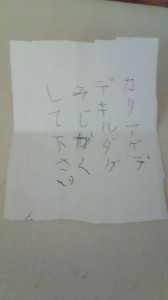 カリアゲデ
デキルダケ
みじかく
して下さい